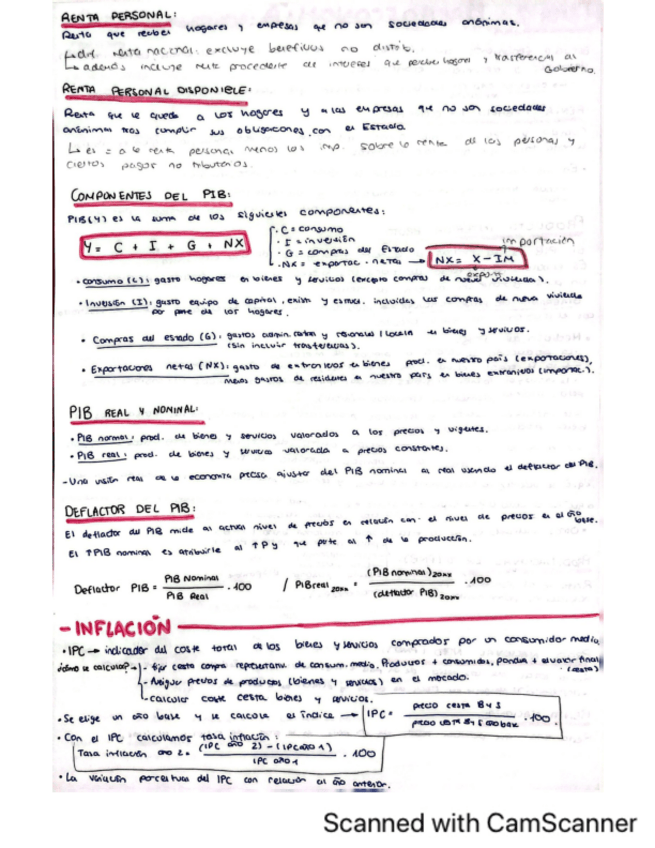 RENTA PERSONAL:
Renta que reciben hogares y empresas que no son sociedades anónimas.
renta nacional: excluye beneficios no distrib.
además incluye renta procedente de intereses que perciben hogares y trasferencias al
Gobierno.
RENTA PERSONAL DISPONIBLE:
Renta que le queda a los hogares y a las empresas que no son sociedades
anónimas tras cumplir sus obligaciones con el Estado.
↳ es = a la renta personal menos los imp. sobre la renta de las personas y
ciertos pagos no tributarios.
COMPONENTES DEL PIB:
PIB(Y) es la suma de los siguientes componentes:
Y = C + I + G + NX
· C = consumo
· I = inversión
· G = compras del Estado
· NX = exportac. netas → NX = X - IM
importación
· Consumo (C): gasto hogares en bienes y servicios (excepto compras de nueva vivienda).
· Inversión (I): gasto equipo de capital, exist y estruc. incluidas las compras de nueva vivienda
por parte de los hogares.
· Compras del estado (G): gastos admin. y local en bienes y servicios.
(sin incluir trasferencias).
· Exportaciones netas (NX): gasto de extranjeros en bienes prod. en nuestro país (exportaciones),
menos gastos de residentes en nuestro país en bienes extranjeros (importac.).
PIB REAL Y NOMINAL:
· PIB normal: prod. de bienes y servicios valorados a los precios y vigentes.
· PIB real: prod. de bienes y servicios valorada a precios constantes.
- Una visión real de la economía precisa ajustar del PIB nominal al real usando el deflactor del PIB.
DEFLACTOR DEL PIB:
El deflactor del PIB mide al actual nivel de precios en relación con el nivel de precios en el año
base.
El ↑PIB nominal es atribuirle al ↑P y que parte al ↑ de la producción.
Deflactor PIB = PIB Nominal / PIB Real · 100 / PIBreal 20xx = (PIB nominal) 20xx / (deflactor PIB) 20xx · 100
- INFLACIÓN
· IPC → indicador del coste total de los bienes y servicios comprados por un consumidor medio
¿cómo se calcula? → - fijar cesta compra representativ. de consum. medio. Productos + consumidos, final
(cesta)
- Averiguar precios de productos (bienes y servicios) en el mercado.
- calcular coste cesta bienes y servicios.
· Se elige un año base y se calcula el índice → IPC = precio cesta B y S / precio cesta B y S año base · 100
· Con el IPC calculamos tasa inflación:
Tasa inflación año 2 = (IPC año 2) - (IPC año 1) / IPC año 1 · 100
· La variación porcentual del IPC con relación al año anterior.
Scanned with CamScanner